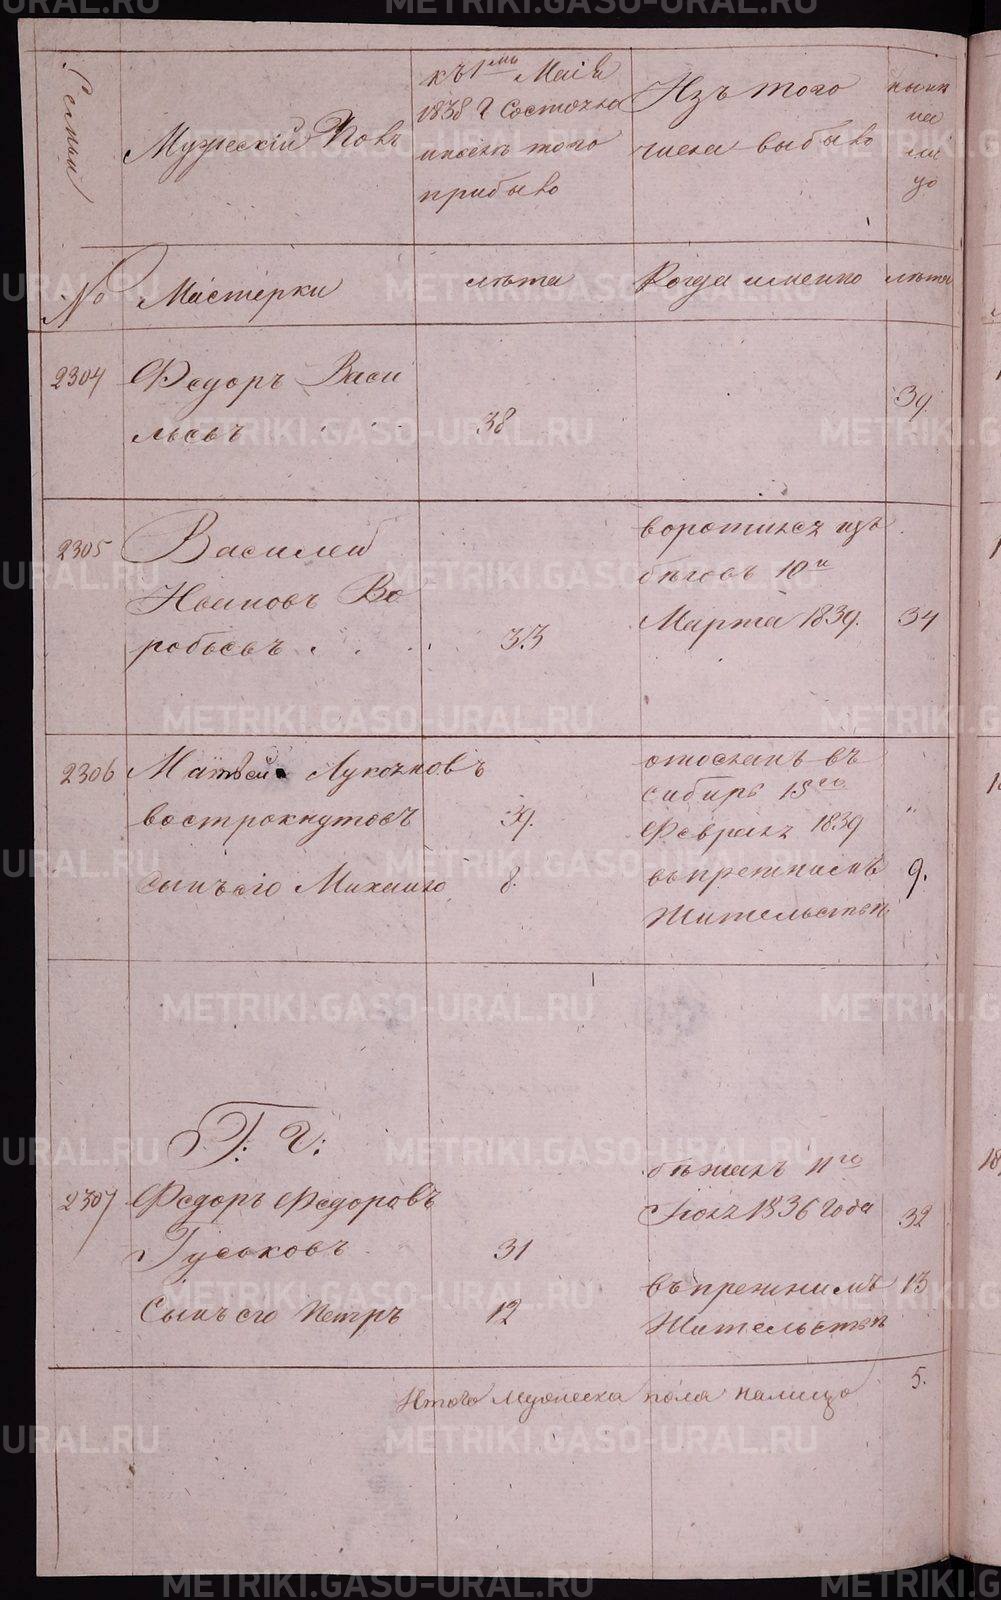 Семьи
Мужескій Полъ
къ 1му Маія
1838 г Состояло
и послѣ того
прибыло
Изъ того
числа выбыло
нынѣ
на
ли
цо
№ Мастерки лѣта Когда именно лѣта
2304 Федоръ Васи
льевъ 38 39
2305 Василей
Ивановъ Во
робьевъ 33
воротился изъ
бѣговъ 10и
Марта 1839. 34
2306 Матвей Лукояновъ
вострокнутовъ 39.
отосланъ въ
сибирь 15го
Февраля 1839 "
сынъ его Михаило 8.
въ прежнемъ 9.
жительствѣ
Г. Г:
2307 Федоръ Федоровъ
Гуськовъ 31
бѣжалъ 11го
Іюля 1836 года 32
Сынъ его Петръ 12
въ прежнимъ 13
жительствѣ
Итого мужеска пола налицо 5.
METRIKI.GASO-URAL.RU